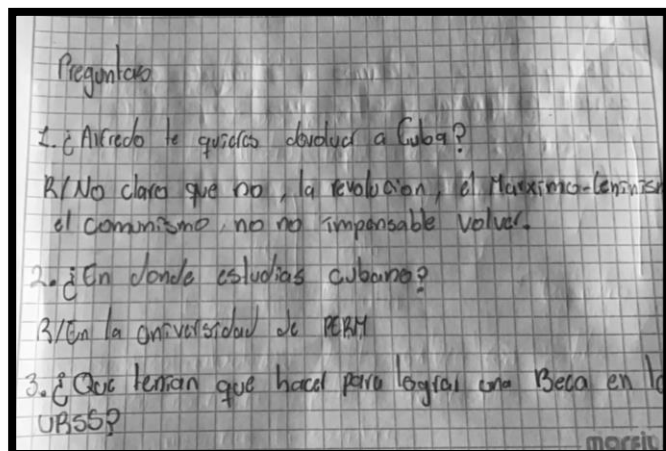 Preguntas
1. ¿Alfredo te quieres devolver a Cuba?
R/No claro que no, la revolucion, el Marximo-leninism
el communismo, no no impensable volver.
2. ¿En donde estudias cubano?
R/En la universidad de PERM
3. ¿Que tenian que hacer para lograr una Beca en la
URSS?